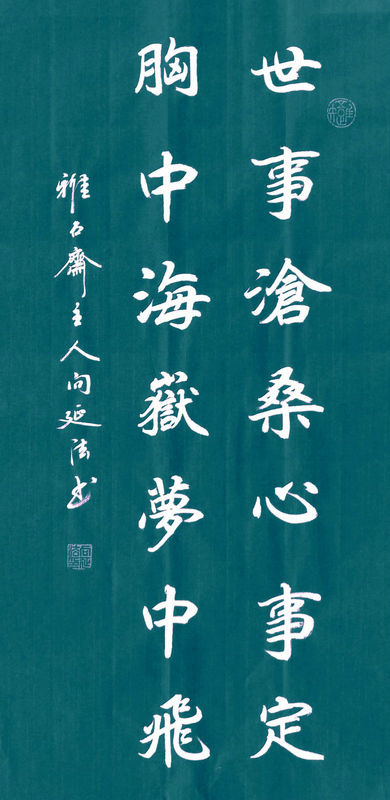 世事滄桑心事定
胸中海嶽夢中飛
雅石齋主人向延法书